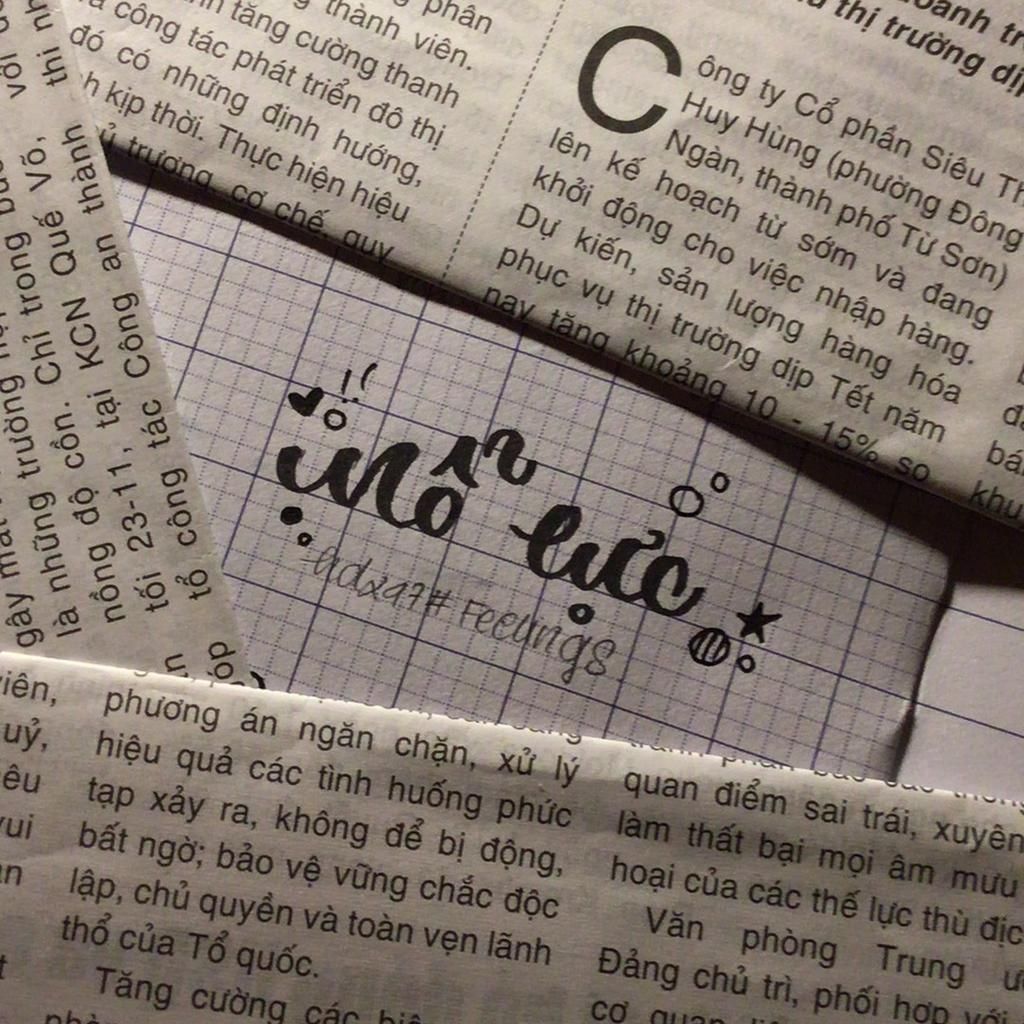 phân
thành viên.
tăng cường thanh
công tác phát triển đô thị
đó có những định hướng,
kịp thời. Thực hiện hiệu
trương, cơ chế, quy
thị trường dịp
Công ty Cổ phần Siêu
Huy Hùng (phường Đông
Ngàn, thành phố Từ Sơn)
lên kế hoạch từ sớm và đang
khởi động cho việc nhập hàng.
Dự kiến, sản lượng hàng hóa
phục vụ thị trường dịp Tết năm
nay tăng khoảng 10 - 15% so
là những trường
nồng độ cồn. Chỉ trong
tối 23-11, tại KCN Quế Võ,
tổ công tác Công an thành
nỗ lực
#Feelings
viên,
uỷ,
vui
phương án ngăn chặn, xử lý
hiệu quả các tình huống phức
tạp xảy ra, không để bị động,
bất ngờ; bảo vệ vững chắc độc
lập, chủ quyền và toàn vẹn lãnh
thổ của Tổ quốc.
Tăng cường các
quan điểm sai trái, xuyên
làm thất bại mọi âm mưu
hoại của các thế lực thù
Văn phòng Trung
Đảng chủ trì, phối hợp với
cơ quan